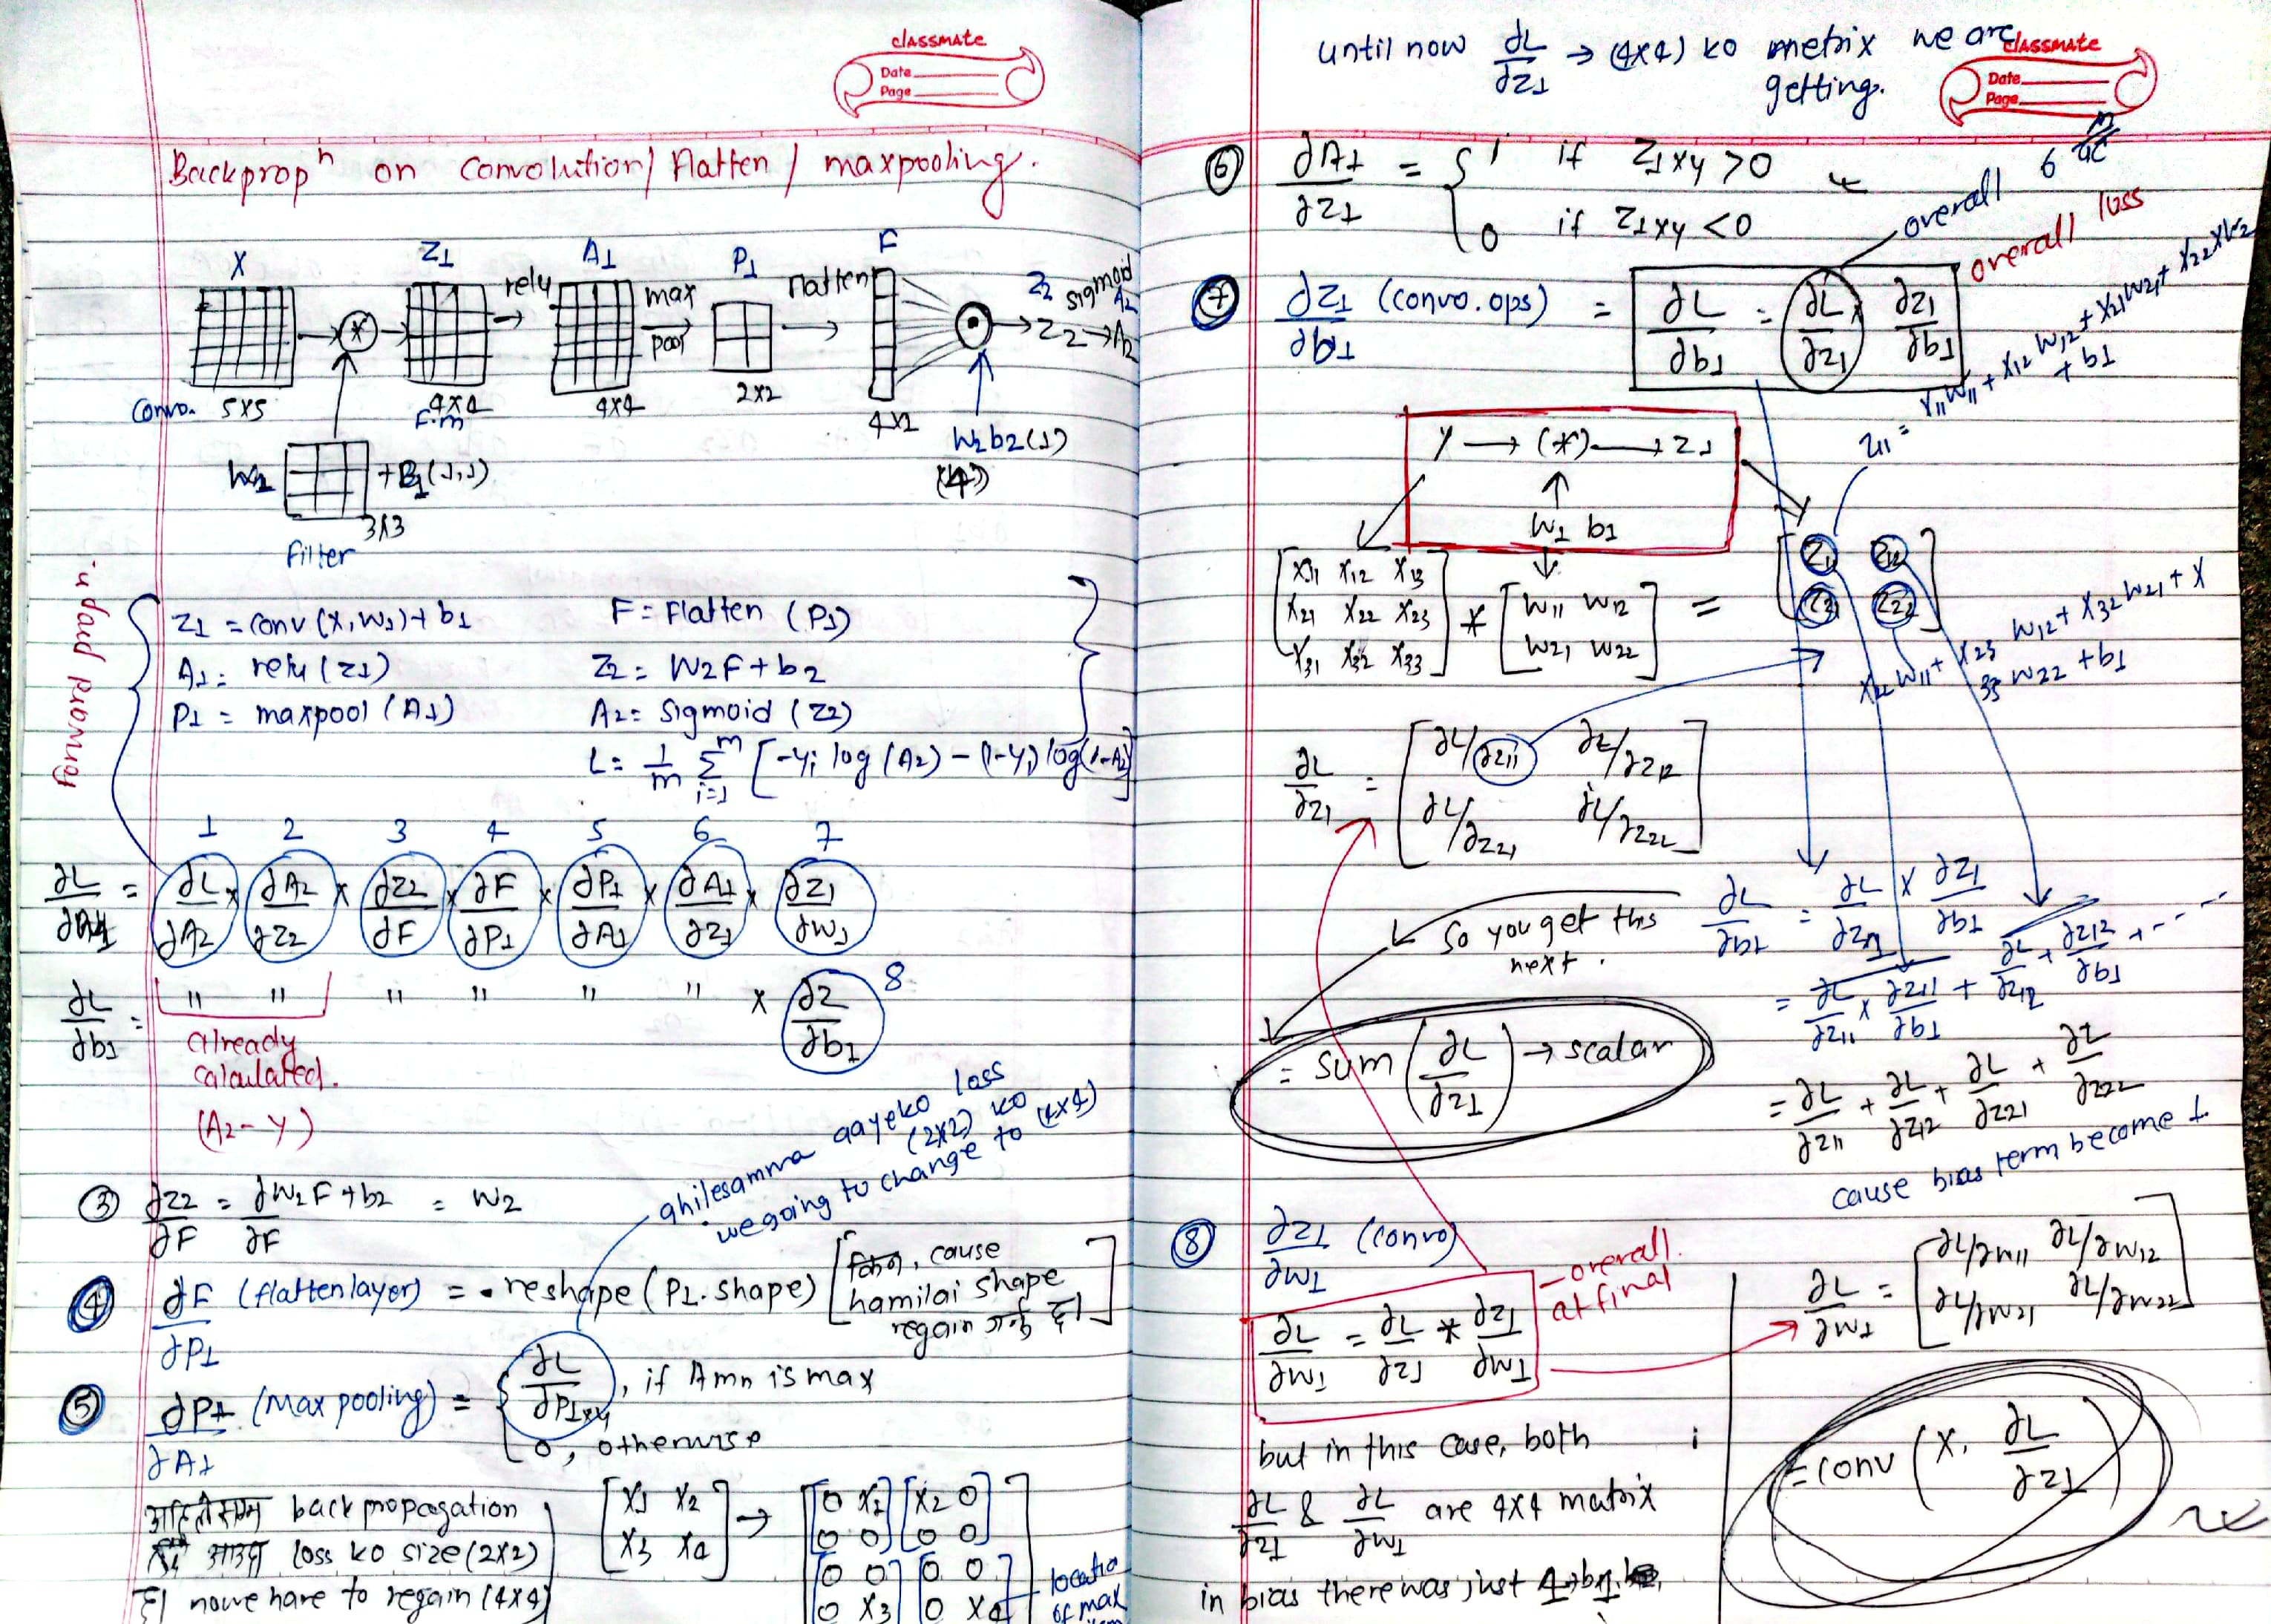 classmate
Date
Page
Backpropⁿ on Convolution/ Flatten / maxpooling.
X Z1 relu A1 max pool P1 flatten F Z2 sigmoid A2
→ Z2 → A2
Convo. 5x5 4x4 4x4 2x2 4x1
F.m
W2 b2 (1)
(4)
W1 + B1 (1,1)
3x3
Filter
forward propagn
Z1 = conv (X, W1) + b1
A1 = relu (Z1)
P1 = maxpool (A1)
F = Flatten (P1)
Z2 = W2F + b2
A2 = Sigmoid (Z2)
L = 1/m Σ i=1 m [-yi log (A2) - (1-yi) log (1-A2)]
1 2 3 4 5 6 7
∂L/∂W1 = ∂L/∂A2 x ∂A2/∂Z2 x ∂Z2/∂F x ∂F/∂P1 x ∂P1/∂A1 x ∂A1/∂Z1 x ∂Z1/∂W1
∂L/∂b1 = " " " " " " x ∂Z/∂b1 8
already
calculated.
(A2 - y)
ahilesamma aayeko loss
(2x2) ko
we going to change to (4x4)
③ ∂Z2/∂F = ∂W2F + b2/∂F = W2
④ ∂F/∂P1 (flatten layer) = reshape (P1. shape) [किन, cause
hamilai shape
regain गर्नु छ।]
⑤ ∂P1/∂A1 (Max pooling) = { ∂L/∂P1xy, if Amn is max
0, otherwise
अहिलेसम्म back propagation
आउदा loss ko size (2x2)
छ। now we have to regain (4x4)
[X1 X2
X3 X4] →
[0 X1] [X2 0]
[0 0] [0 0]
[0 0] [0 0]
[0 X3] [0 X4]
location
of max
until now ∂L/∂Z1 → (4x4) ko metrix we are
getting.
classmate
Date
Page
⑥ ∂A1/∂Z1 = { 1 if Z1xy > 0
0 if Z1xy < 0
⑦ ∂Z1/∂b1 (convo. ops) = ∂L/∂b1 = ∂L/∂Z1 x ∂Z1/∂b1
overall
overall loss
Z11 = X11 W11 + X12 W12 + X21 W21 + X22 x W22
+ b1
X → (*) → Z1
W1 b1
[X11 X12 X13
X21 X22 X23
X31 X32 X33] * [W11 W12
W21 W22] = [Z11 Z12
Z21 Z22]
X22 W11 + X23 W12 + X32 W21 + X
33 W22 + b1
∂L/∂Z1 = [∂L/∂Z11 ∂L/∂Z12
∂L/∂Z21 ∂L/∂Z22]
So you get this
next.
∂L/∂b1 = ∂L/∂Z1 x ∂Z1/∂b1
= ∂L/∂Z11 x ∂Z11/∂b1 + ∂L/∂Z12 + ∂Z12/∂b1 + - - - -
= ∂L/∂Z11 + ∂L/∂Z12 + ∂L/∂Z21 + ∂L/∂Z22
cause bias term become 1.
= sum (∂L/∂Z1) → scalar
⑧ ∂Z1/∂W1 (convo)
∂L/∂W1 = ∂L/∂Z1 * ∂Z1/∂W1
- overall
at final
∂L/∂W1 = [∂L/∂W11 ∂L/∂W12
∂L/∂W21 ∂L/∂W22]
= conv (X, ∂L/∂Z1)
but in this case, both
∂L/∂Z1 & ∂L/∂W1 are 4x4 matrix
in bias there was just 1